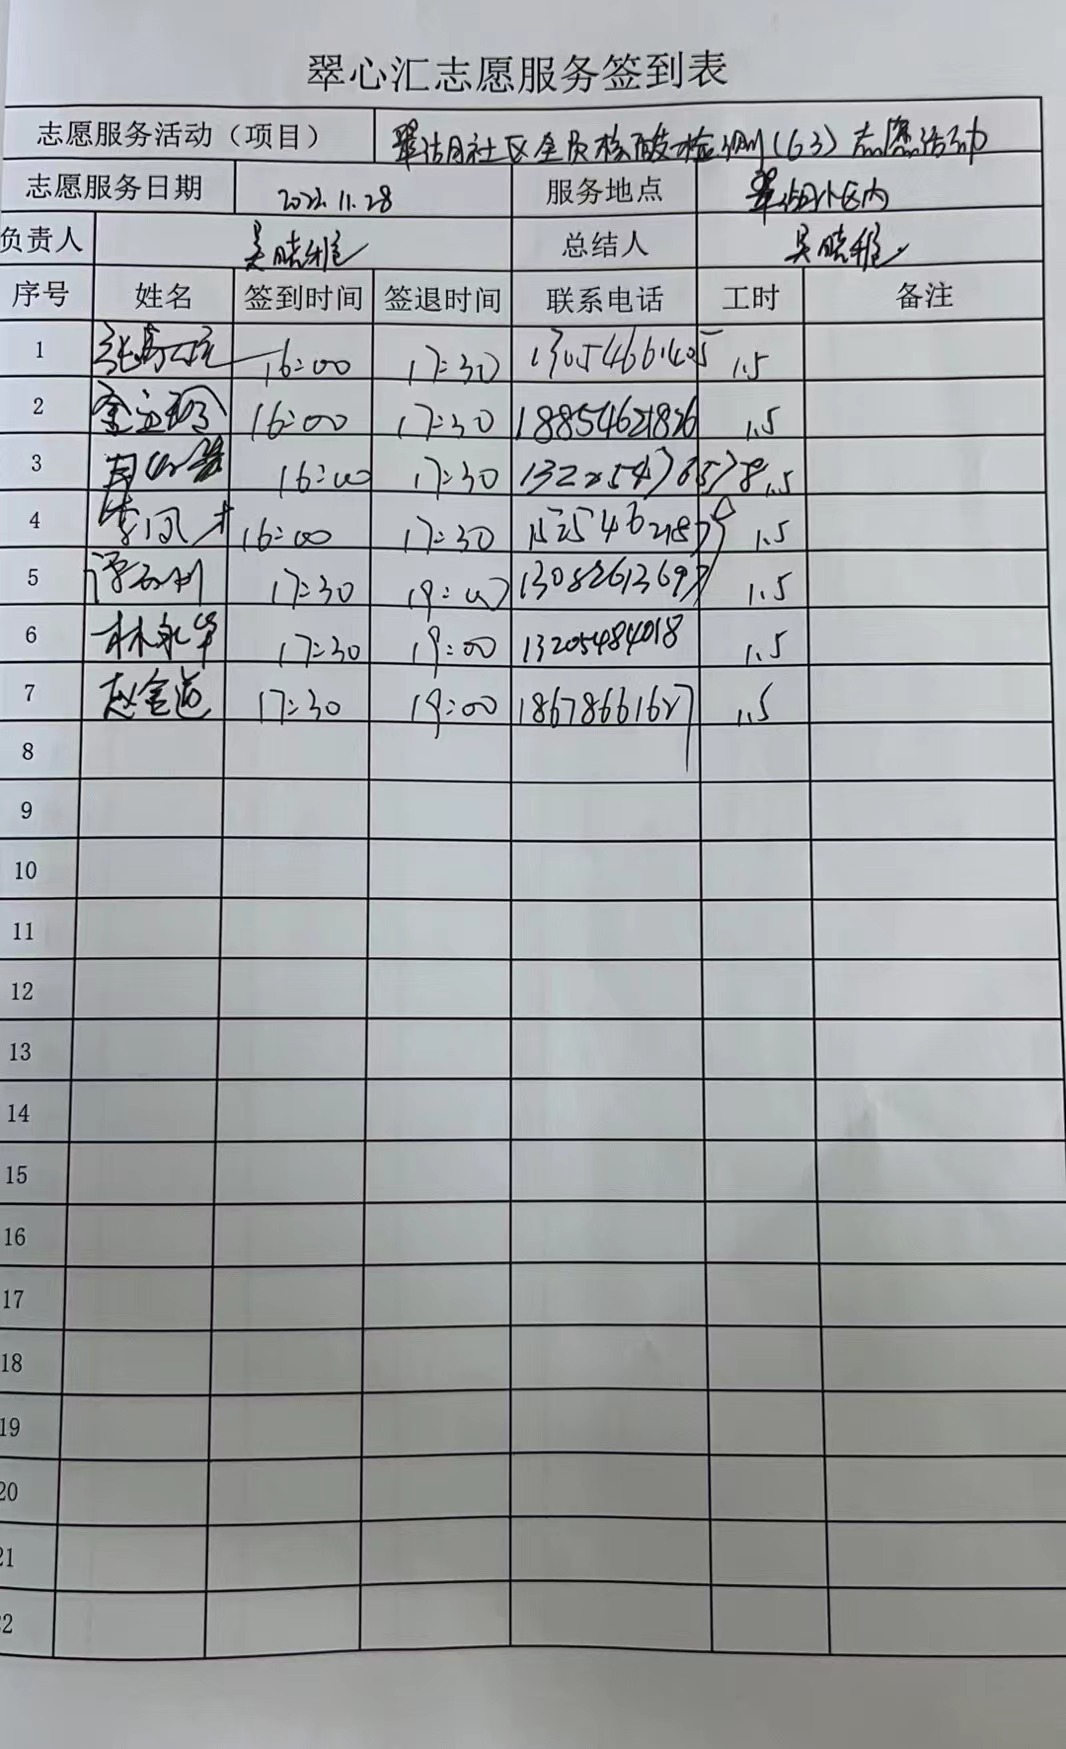 翠心汇志愿服务签到表
志愿服务活动（项目） 社区全员核酸检测(63)志愿活动
志愿服务日期 2022.11.28 服务地点 小区内
负责人 吴晓雅 总结人 吴晓雅
序号 姓名 签到时间 签退时间 联系电话 工时 备注
1 16:00 17:30 13054661405 1.5
2 16:00 17:30 18854621826 1.5
3 16:00 17:30 1.5
4 李凤才 16:00 17:30 1.5
5 17:30 19:00 13082613697 1.5
6 林永华 17:30 19:00 13205484018 1.5
7 赵金道 17:30 19:00 18678661627 1.5
8
9
10
11
12
13
14
15
16
17
18
19
20
21
22